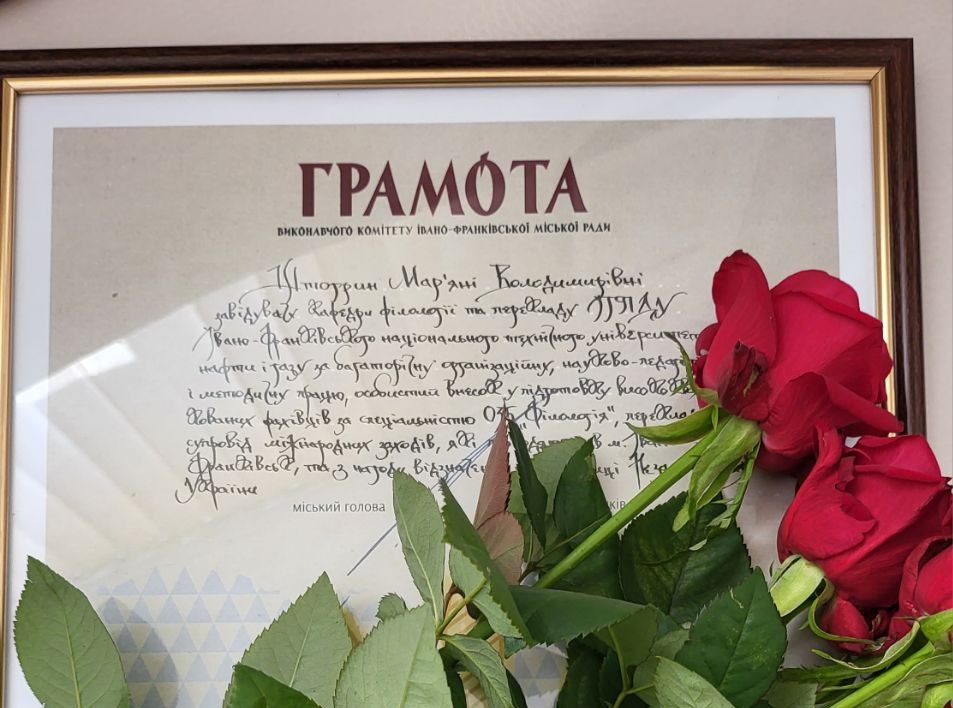 ГРАМОТА
ВИКОНАВЧОГО КОМІТЕТУ ІВАНО-ФРАНКІВСЬКОЇ МІСЬКОЇ РАДИ
Штогрин Мар'яні Володимирівні
завідувач кафедри філології та перекладу
Івано-Франківського національного технічного університету
нафти і газу за багаторічну організаційну, науково-педаго
і методичну працю, особистий внесок у підготовку високо
кованих фахівців за спеціальністю 035 „Філологія", перекла
супровід міжнародних заходів, які в м. Іва
Франківськ, та з нагоди відзна Неза
України
міський голова